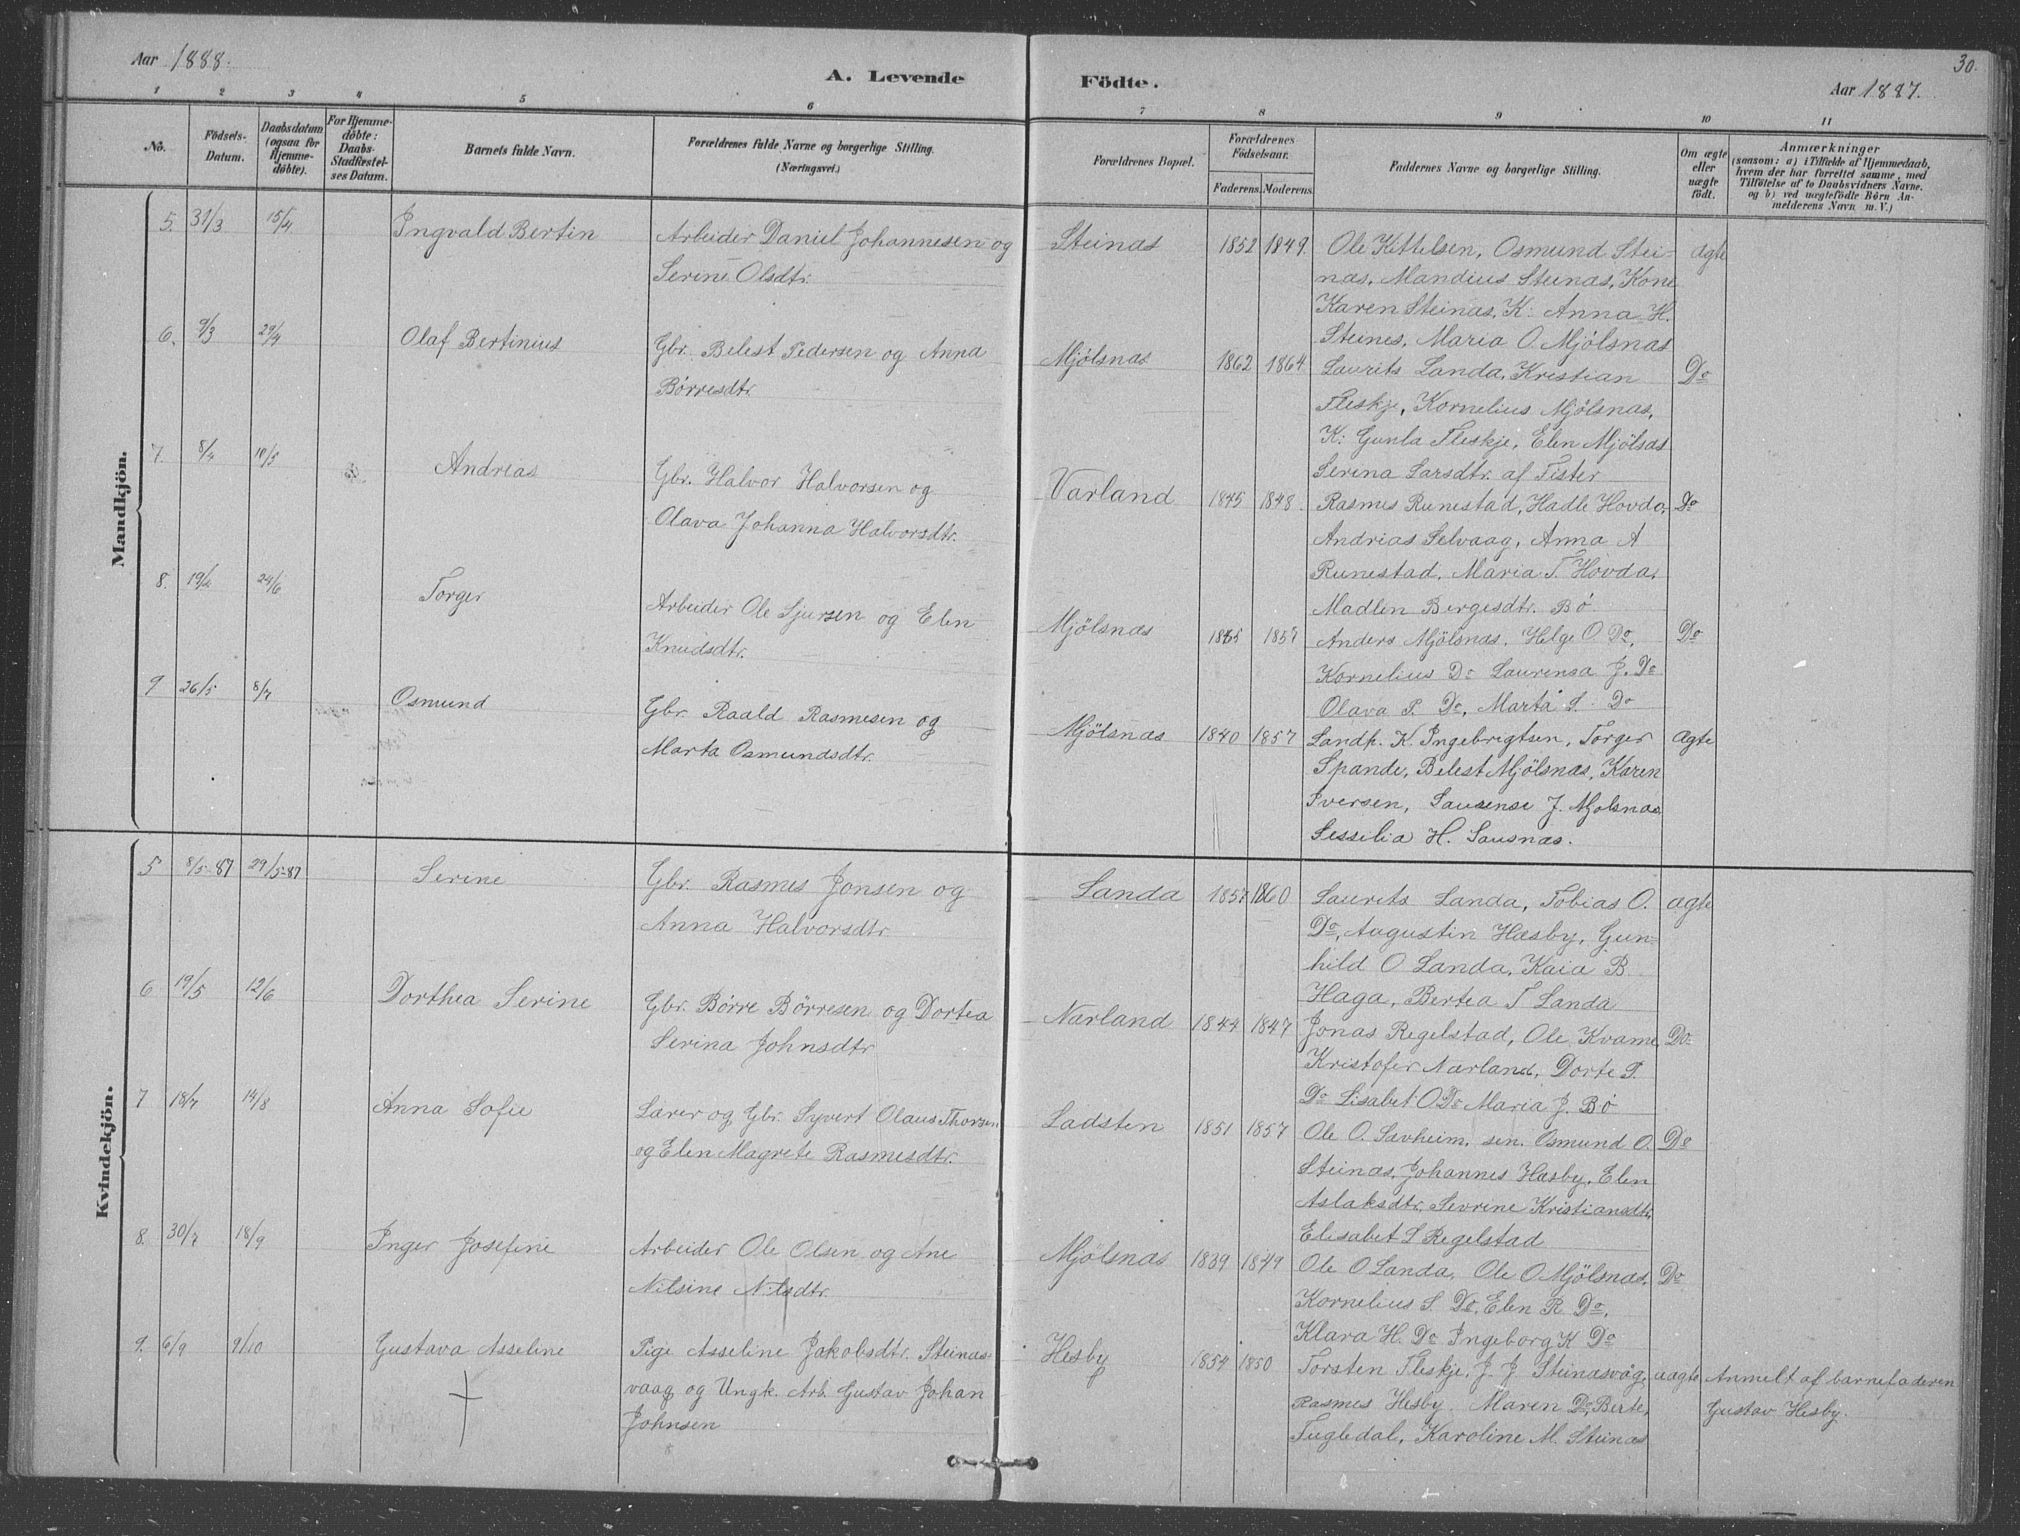 Aar 1888.
A. Levende Födte.
30.
Aar 1887.
1 2 3 4 5 6 7 8 9 10 11
No.
Födsels-Datum.
Daabsdatum (ogsaa for Hjemme-döbte).
For Hjemme-döbte: Daabs-Stadfæstel-ses Datum.
Barnets fulde Navn.
Forældrenes fulde Navne og borgerlige Stilling.
(Næringsvei.)
Forældrenes Bopæl.
Forældrenes Födselsaar.
Faderens. Moderens.
Faddernes Navne og borgerlige Stilling.
Om ægte eller uægte födt.
Anmærkninger
(saasom: a) i Tilfælde af Hjemmedaab,
hvem der har forrettet samme, med
Tilföielse af to Daabsvidners Navne,
og b) ved uægtefödte Börn An-
melderens Navn m. V.)
Mandkjön.
5. 31/3 15/4 Ingvald Bertin Arbeider Daniel Johannesen og Steinas 1852 1849. Ole Kittelsen, Osmund Stei- ægte
Serine Olsdtr. nas, Mandius Steinas, Kone
Karen Steinas, K: Anna H.
Steines, Maria O. Mjölsnas
6. 9/3 29/4 Olaf Bertinius Gbr. Belest Pedersen og Anna Mjölsnas 1862 1864 Laurits Landa, Kristian Do
Börresdtr. Fleskje, Kornelius Mjölsnas,
K: Gunla Fleskje, Elen Mjölsnas
Serina Larsdtr. af Fister
7. 8/4 10/5 Andrias Gbr. Halvor Halvorsen og Varland 1845 1848. Rasmes Runestad, Hadle Hovda, Do
Olava Johanna Halvorsdtr. Andrias Selvaag, Anna A
Runestad, Maria T. Hovda,
Madlen Bergesdtr. Bö.
8. 19/4 24/6 Torger Arbeider Ole Sjursen og Elen Mjölsnas 1857 Anders Mjölsnas, Helge O Do, Do
Knudsdtr. Kornelius Do Laurensa J. Do
Olava P. Do, Marta S. Do
9 26/5 8/7 Osmund Gbr. Raald Rasmesen og Mjölsnas 1840 1857 Landh. K. Ingebrigtsen, Torger ægte
Marta Osmundsdtr. Spande, Belest Mjölsnas, Karen
Iversen, Laurense J. Mjolsnas
Sessilia H. Sausnas.
Kvindekjön.
5 8/5-87 29/5-87 Serine Gbr. Rasmes Jonsen og Landa 1857 1860 Laurits Landa, Tobias O. ægte
Anna Halvorsdtr. Do, Augustin Hæsby, Gun-
hild O Landa, Kaia B
Haga, Bertea T Landa
6 19/5 12/6 Dorthea Serine Gbr. Börre Börresen og Dortea Nærland 1844 1847 Jonas Regelstad, Ole Kvame, Do
Serina Johnsdtr Kristofer Nærland, Dorte P.
Do Lisabet O Do Maria J. Bö
7 18/7 14/8 Anna Sofie Lærer og Gbr. Syvert Olaus Thorsen Ladsten 1851 1857 Ole O. Savheim, sen. Osmund O. Do
og Elen Magrete Rasmesdtr. Steinas, Johannes Hæsby, Elen
Aslaksdtr, Sevrine Kristiansdtr,
Elisabet S Regelstad
8. 30/7 18/9 Inger Josefine Arbeider Ole Olsen og Ane Mjölsnas 1839 1849 Ole O Landa, Ole O Mjölsnas, Do
Nilsine Nilsdtr. Kornelius S. Do, Elen R Do,
Klara H. Do Ingeborg K Do
9. 6/9 9/10 Gustava Asseline Pige Asseline Jakobsdtr. Steinas- Hesby 1854 1850 Torsten Fleskje, J. J Steinasvåg, uægte Anmelt af barnefaderen
vaag og Ungk. Arb. Gustav Johan Rasmes Hesby. Maren Do, Berte, Gustav Hesby.
Johnsen Fugledal, Karoline M. Steinas